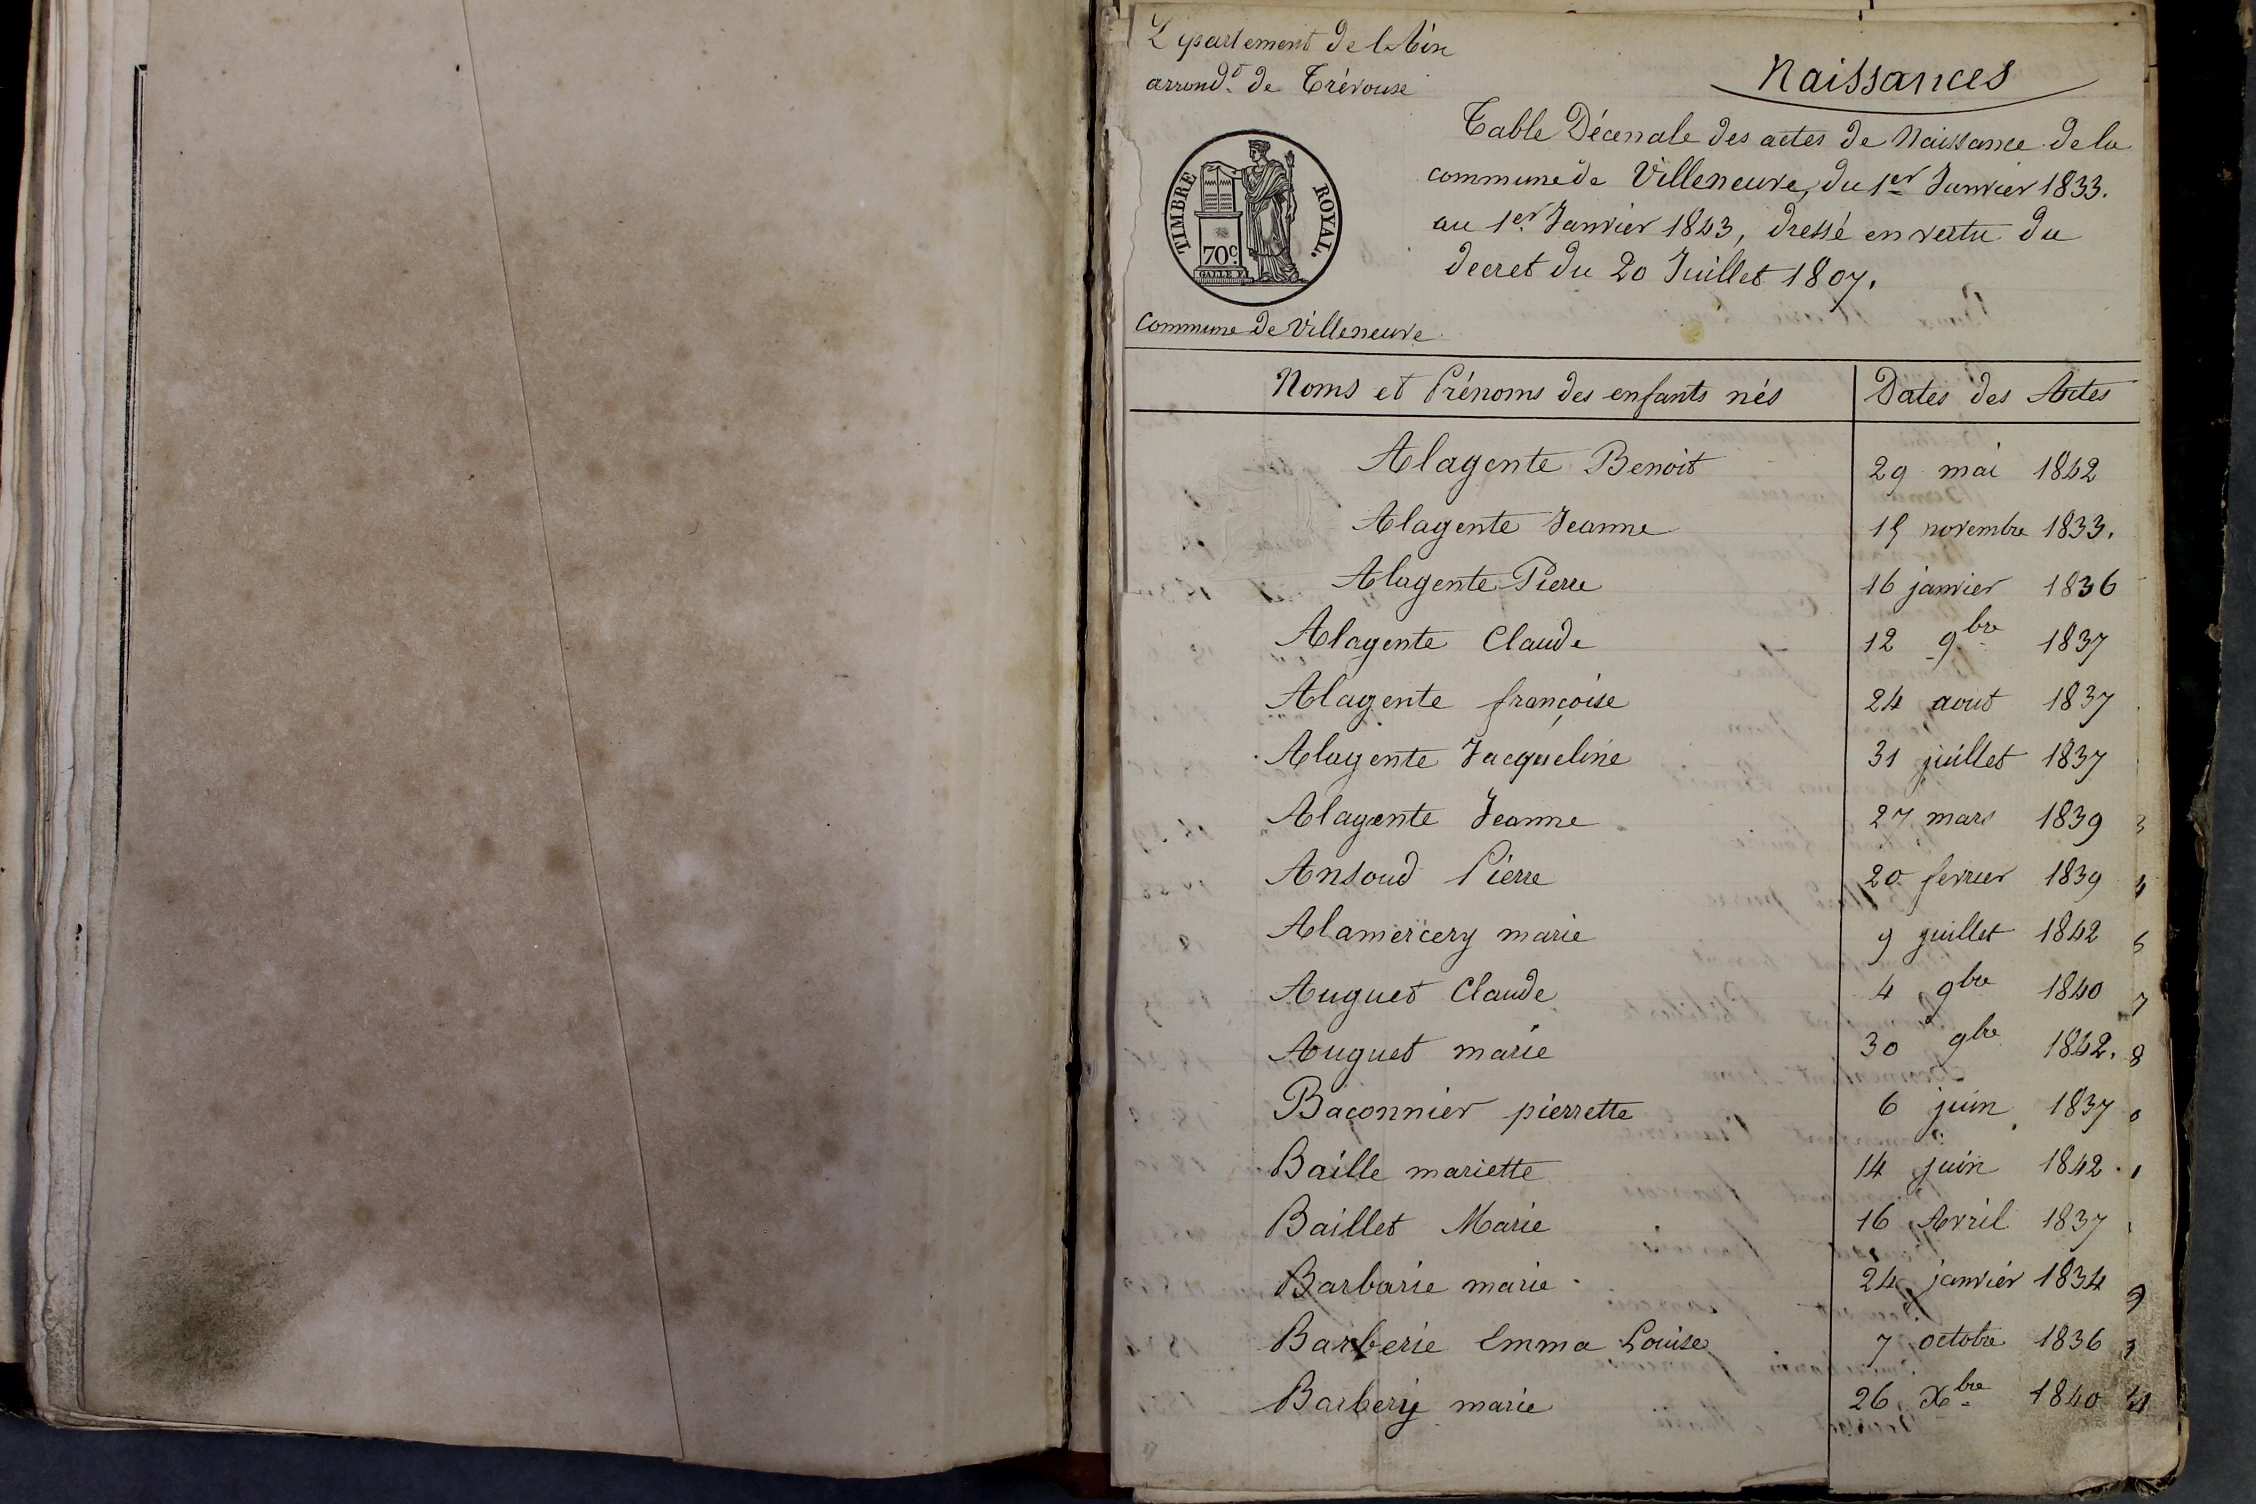 Département de l'Ain
arrond.t de Trévoux
Naissances
Table Décenale des actes de Naissance de la
commune de Villeneuve, du 1er Janvier 1833.
au 1er Janvier 1843, dressé en vertu du
decret du 20 Juillet 1807.
TIMBRE ROYAL.
70c.
Commune de Villeneuve
Noms et Prénoms des enfants nés Dates des Actes
Alagente Benoit 29 mai 1842
Alagente Jeanne 15 novembre 1833.
Alagente Pierre 16 janvier 1836
Alagente Claude 12 9bre 1837
Alagente françoise 24 aout 1837
Alagente Jacqueline 31 juillet 1837
Alagente Jeanne 27 mars 1839
Ansoud Pierre 20 fevrier 1839
Alamercery marie 9 juillet 1842
Auguet Claude 4 9bre 1840
Auguet marie 30 9bre 1842.
Baconnier pierrette 6 juin 1837
Baille mariette 14 juin 1842.
Baillet Marie 16 Avril 1837
Barbarie marie 24 janvier 1834
Barberie Emma Louise 7 octobre 1836
Barbery marie 26 Xbre 1840